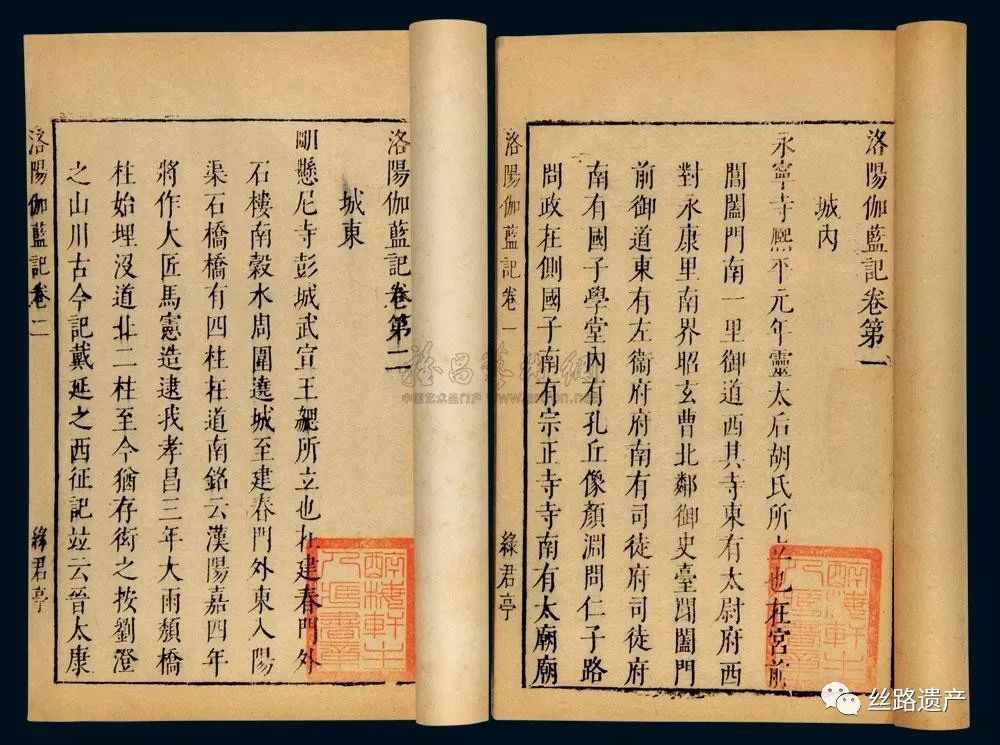 洛陽伽藍記卷第一
城内
永寧寺熙平元年靈太后胡氏所立也在宮前
閶闔門南一里御道西其寺東有太尉府西
對永康里南界昭玄曹北鄰御史臺閶闔門
前御道東有左衞府府南有司徒府司徒府
南有國子學堂内有孔丘像顏淵問仁子路
問政在側國子南有宗正寺寺南有太廟廟
洛陽伽藍記卷一
綠君亭
洛陽伽藍記卷第二
城東
明懸尼寺彭城武宣王勰所立也在建春門外
石樓南穀水周圍遶城至建春門外東入陽
渠石橋橋有四柱在道南銘云漢陽嘉四年
將作大匠馬憲造逮我孝昌三年大雨頽橋
柱始埋沒道北二柱至今猶存衒之按劉澄
之山川古今記戴延之西征記竝云晉太康
洛陽伽藍記卷二
綠君亭
雅昌藝術網
中国艺术品门户 www.artron.net
丝路遗产